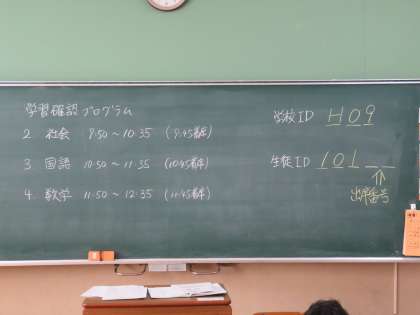 学習確認プログラム
2 社会 9:50～10:35 (9:45着席)
3 国語 10:50～11:35 (10:45着席)
4. 数学 11:50～12:35 (11:45着席)
学校ID H09
生徒ID 101_ _
出席番号